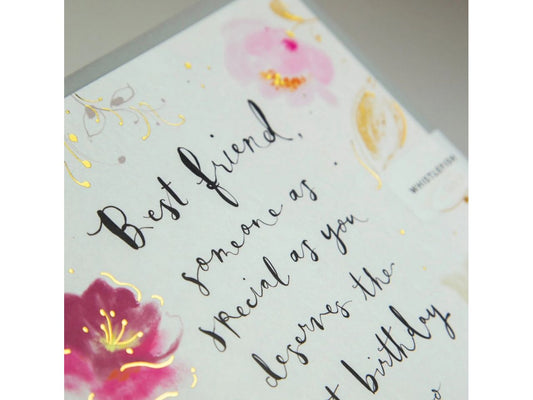 Best friend,
someone as
special as you
deserves the
birthday
WHISTLEFISH